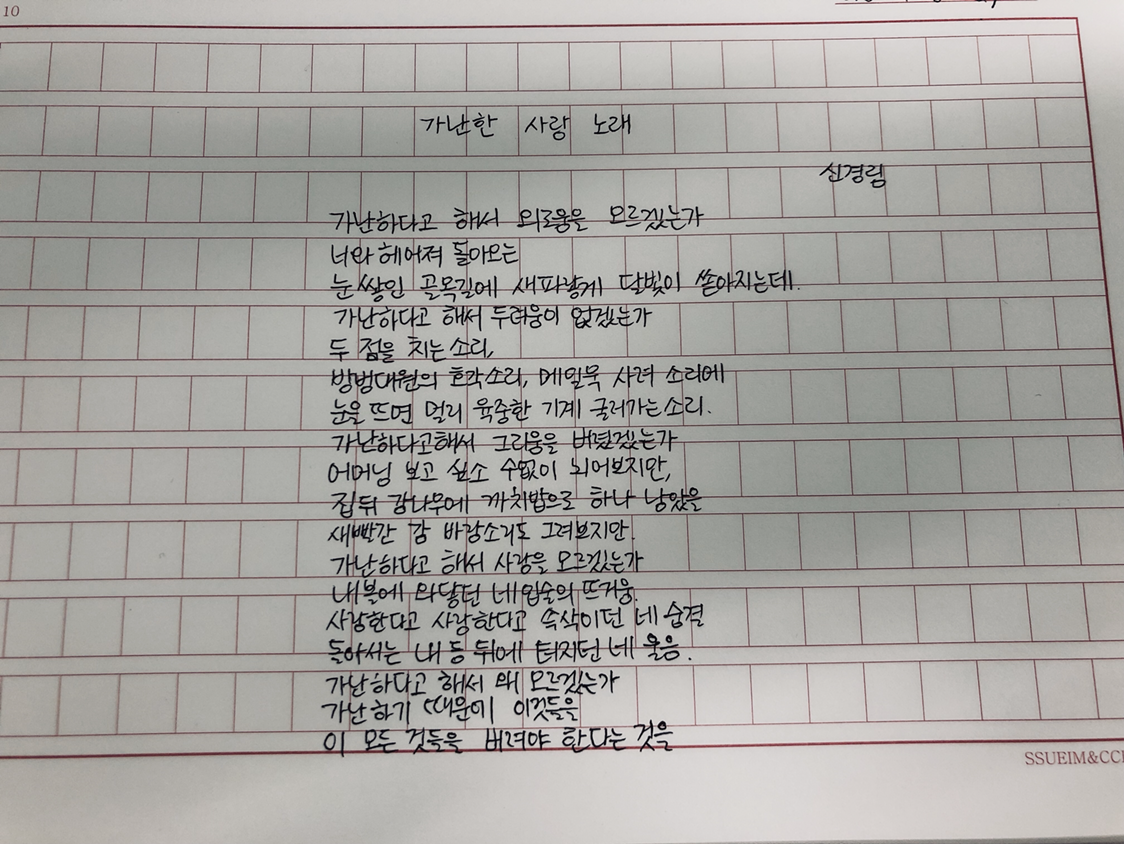 10
가난한 사랑 노래
신경림
가난하다고 해서 외로움을 모르겠는가
너와 헤어져 돌아오는
눈 쌓인 골목길에 새파랗게 달빛이 쏟아지는데.
가난하다고 해서 두려움이 없겠는가
두 점을 치는 소리,
방범대원의 호각소리, 메밀묵 사려 소리에
눈을 뜨면 멀리 육중한 기계 굴러가는 소리.
가난하다고해서 그리움을 버렸겠는가
어머님 보고 싶소 수없이 뇌어보지만,
집뒤 감나무에 까치밥으로 하나 남았을
새빨간 감 바람소리도 그려보지만.
가난하다고 해서 사랑을 모르겠는가
내 볼에 와 닿던 네 입술의 뜨거움.
사랑한다고 사랑한다고 속삭이던 네 숨결
돌아서는 내 등 뒤에 터지던 네 울음.
가난하다고 해서 왜 모르겠는가
가난하기 때문에 이것들을
이 모든 것들을 버려야 한다는 것을